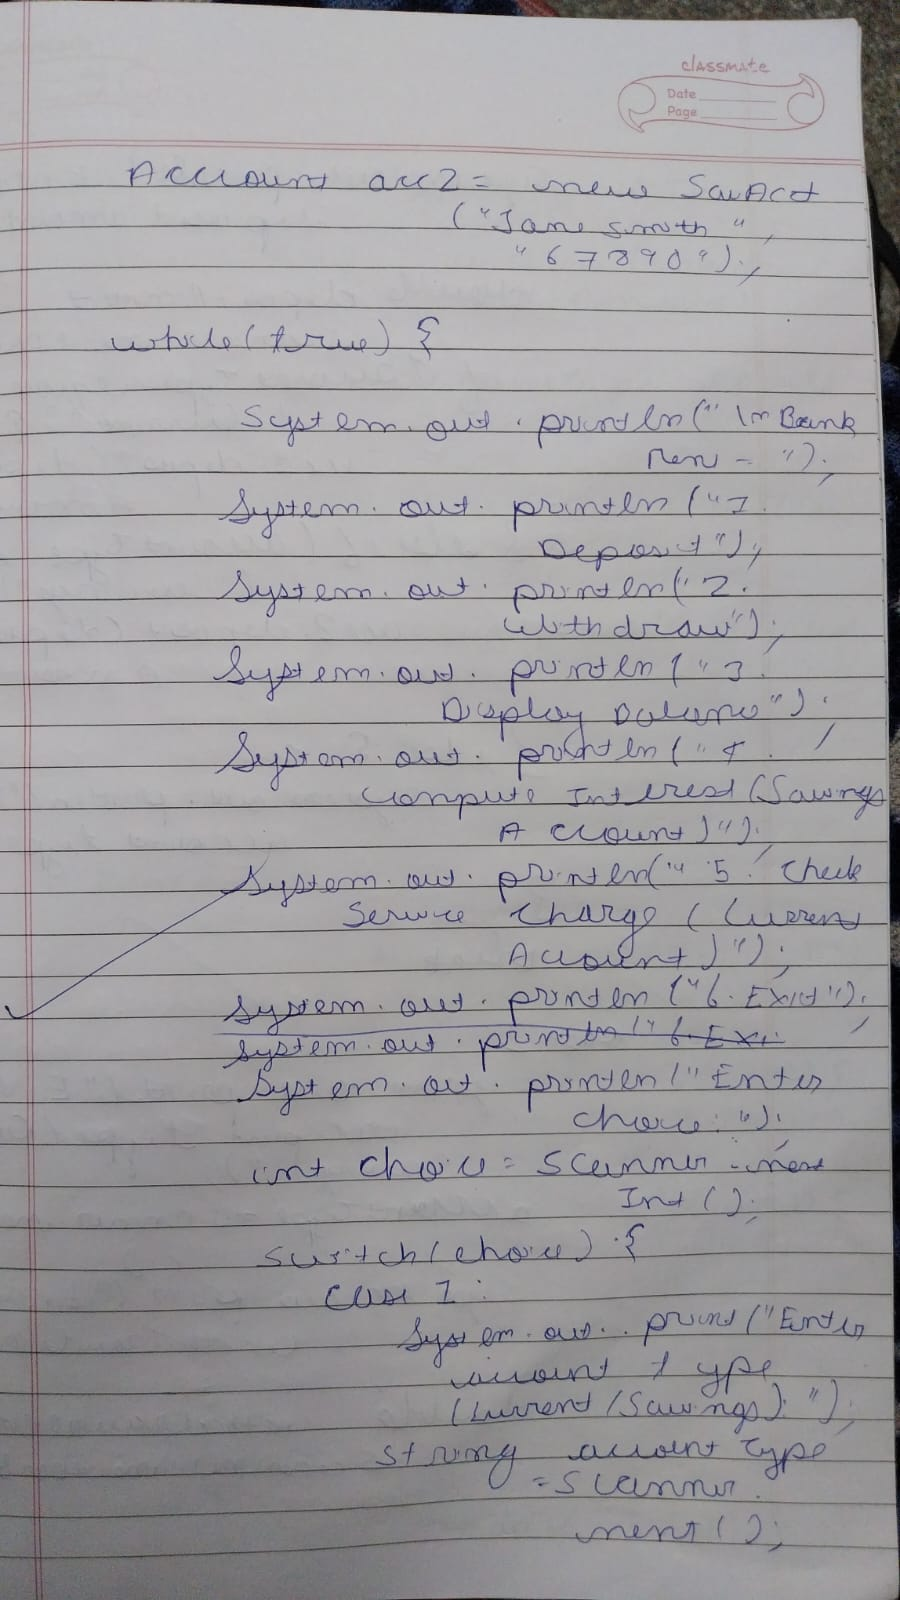 classmate
Date
Page
Account acc2 = new SavAcct
("Jane smith",
"67890");
while(true) {
System.out.println("\n Bank
Men - ");
System.out.println("1.
Deposit");
System.out.println("2.
Withdraw");
System.out.println("3.
Display Balance");
System.out.println("4.
Compute Interest (Savings
Account)");
System.out.println("5. Check
Service Charge (Current
Account)");
System.out.println("6. Exit");
System.out.println("6. Exi
System.out.println("Enter
choice: ");
int choice = scanner.next
Int();
switch(choice) {
case 1:
System.out.print("Enter
account type
(Current/Savings): ");
String account Type
= scanner.
next();